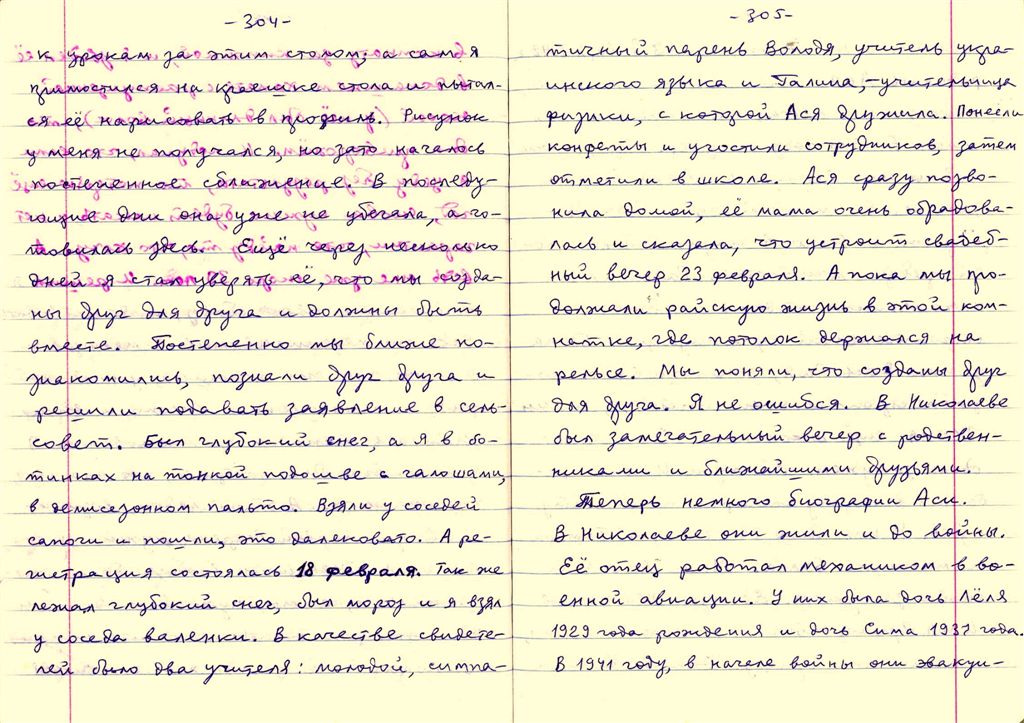 -304-
к урокам за этим столом; а сам я
примостился на краешке стола и пытал-
ся её нарисовать в профиль. Рисунок
у меня не получался, но зато началось
постепенное сближение. В последу-
ющие дни она уже не убегала, а го-
товилась здесь. Ещё через несколько
дней я стал уверять её, что мы созда-
ны друг для друга и должны быть
вместе. Постепенно мы ближе по-
знакомились, познали друг друга и
решили подавать заявление в сель-
совет. Был глубокий снег, а я в бо-
тинках на тонкой подошве с галошами,
в демисезонном пальто. Взяли у соседей
сапоги и пошли, это далековато. А ре-
гистрация состоялась 18 февраля. Так же
лежал глубокий снег, был мороз и я взял
у соседа валенки. В качестве свидете-
лей было два учителя: молодой, симпа-
-305-
тичный парень Володя, учитель укра-
инского языка и Галина, – учительница
физики, с которой Ася дружила. Понесли
конфеты и угостили сотрудников, затем
отметили в школе. Ася сразу позво-
нила домой, её мама очень обрадова-
лась и сказала, что устроит свадеб-
ный вечер 23 февраля. А пока мы про-
должали райскую жизнь в этой ком-
натке, где потолок держался на
рельсе. Мы поняли, что созданы друг
для друга. Я не ошибся. В Николаеве
был замечательный вечер с родствен-
никами и ближайшими друзьями.
Теперь немного биографии Аси.
В Николаеве они жили и до войны.
Её отец работал механиком в во-
енной авиации. У них была дочь Лёля
1929 года рождения и дочь Сима 1937 года.
В 1941 году, в начале войны они эвакуи-